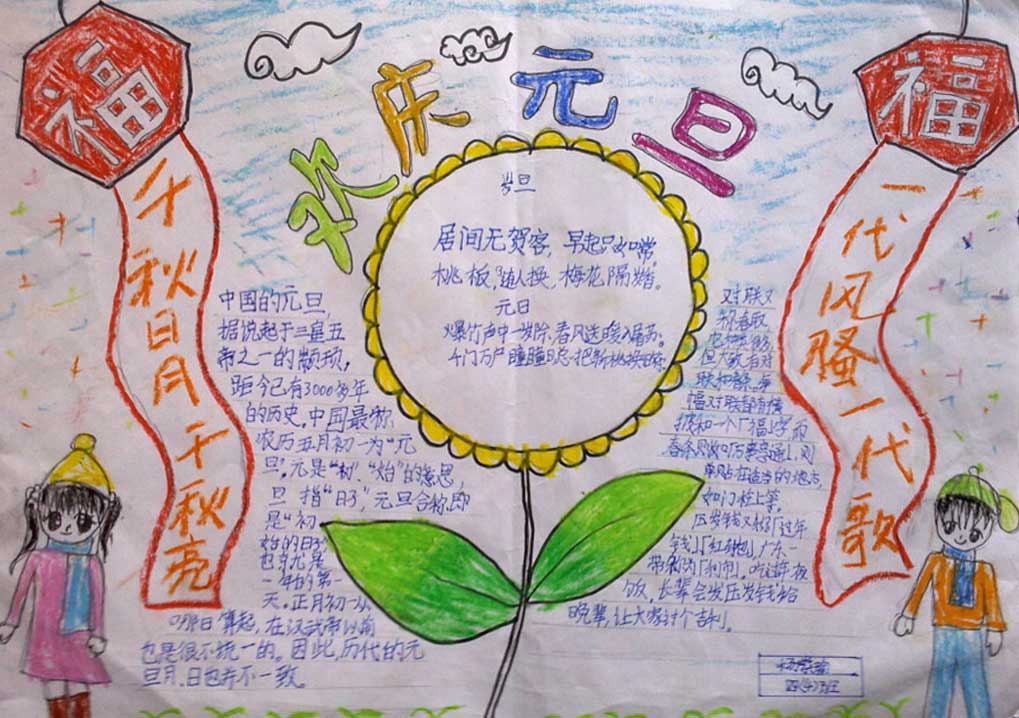 福
福
欢庆元旦
千秋日月千秋亮
一代风骚一代歌
岁旦
居间无贺客，早起只如常，
桃板随人换，梅花隔
元日
爆竹声中一岁除，春风送暖入屠苏。
千门万户瞳瞳日，总把新桃换旧符。
中国的元旦，
据说起于三皇五
帝之一的颛顼，
距今已有3000多年
的历史。中国最初
农历五月初一为“元
旦”。元是“初”、“始”的意思，
旦，指“日子”，元旦合称，即
是“初
始的日子”
也就是
一年的第一
天。正月初一从
哪日算起，在汉武帝以前
也是很不统一的。因此，历代的元
旦月、日也并不一致。
对联又
但大致有对
和一个「福」字，而
单贴在适当的地方，
如门栓上等。
压岁钱又称「过年
钱」「红包」，广东一
带称为「利市」。吃过年夜
饭，长辈会发压岁钱给
晚辈，让大家讨个吉利。